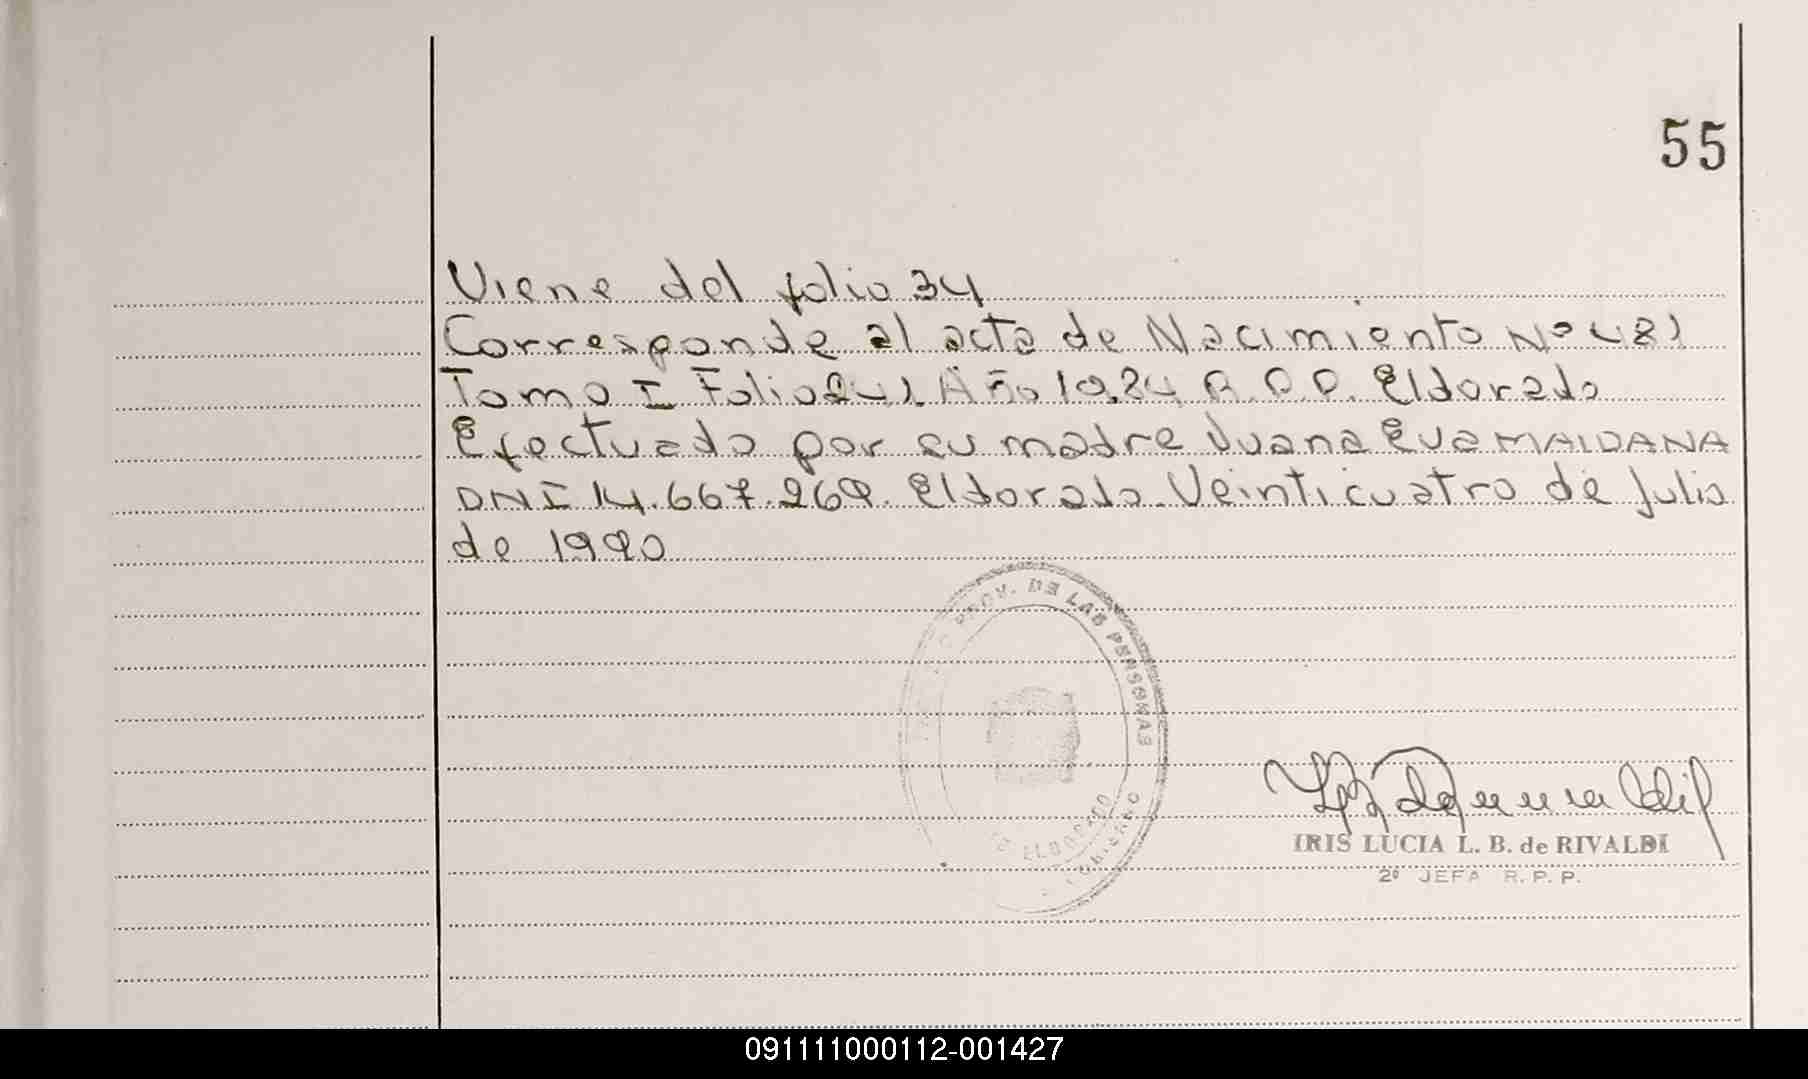 55
Viene del folio 34
Corresponde al acta de Nacimiento Nº 481
Tomo I Folio 241 Año 1984 R.P.P. Eldorado
Efectuado por su madre Juana Eva MALDANA
DNI 14.667.269. Eldorado. Veinticuatro de Julio
de 1990
PROV. DE LAS PERSONAS
ELDORADO
GOBIERNO
IRIS LUCIA L. B. de RIVALDI
2º JEFA R. P. P.
091111000112-001427